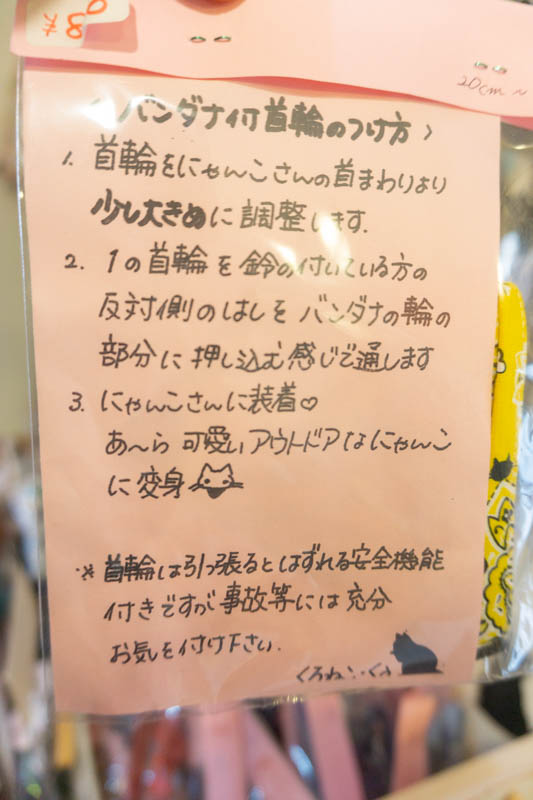 20cm~
〈バンダナ付首輪のつけ方〉
1. 首輪をにゃんこさんの首まわりより
少し大きめに調整します.
2. 1の首輪を鈴の付いている方の
反対側のはしをバンダナの輪の
部分に押し込む感じで通します
3. にゃんこさんに装着♡
あ〜ら可愛いアウトドアなにゃんこ
に変身
※首輪は引っ張るとはずれる安全機能
付きですが事故等には充分
お気を付け下さい.